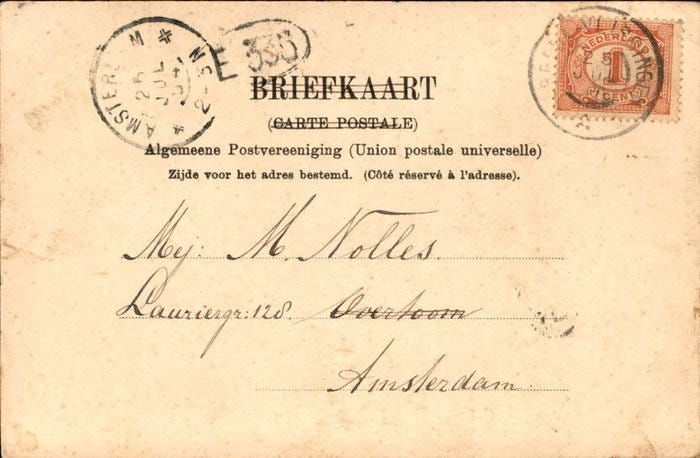 AMSTERDAM
25 JUL
2-3N
E 333
NEDERLAND
1
CENT
BRIEFKAART
(CARTE POSTALE)
Algemeene Postvereeniging (Union postale universelle)
Zijde voor het adres bestemd. (Côté réservé à l'adresse).
Mej: M. Nolles.
Lauriergr: 128. Overtoom
Amsterdam.